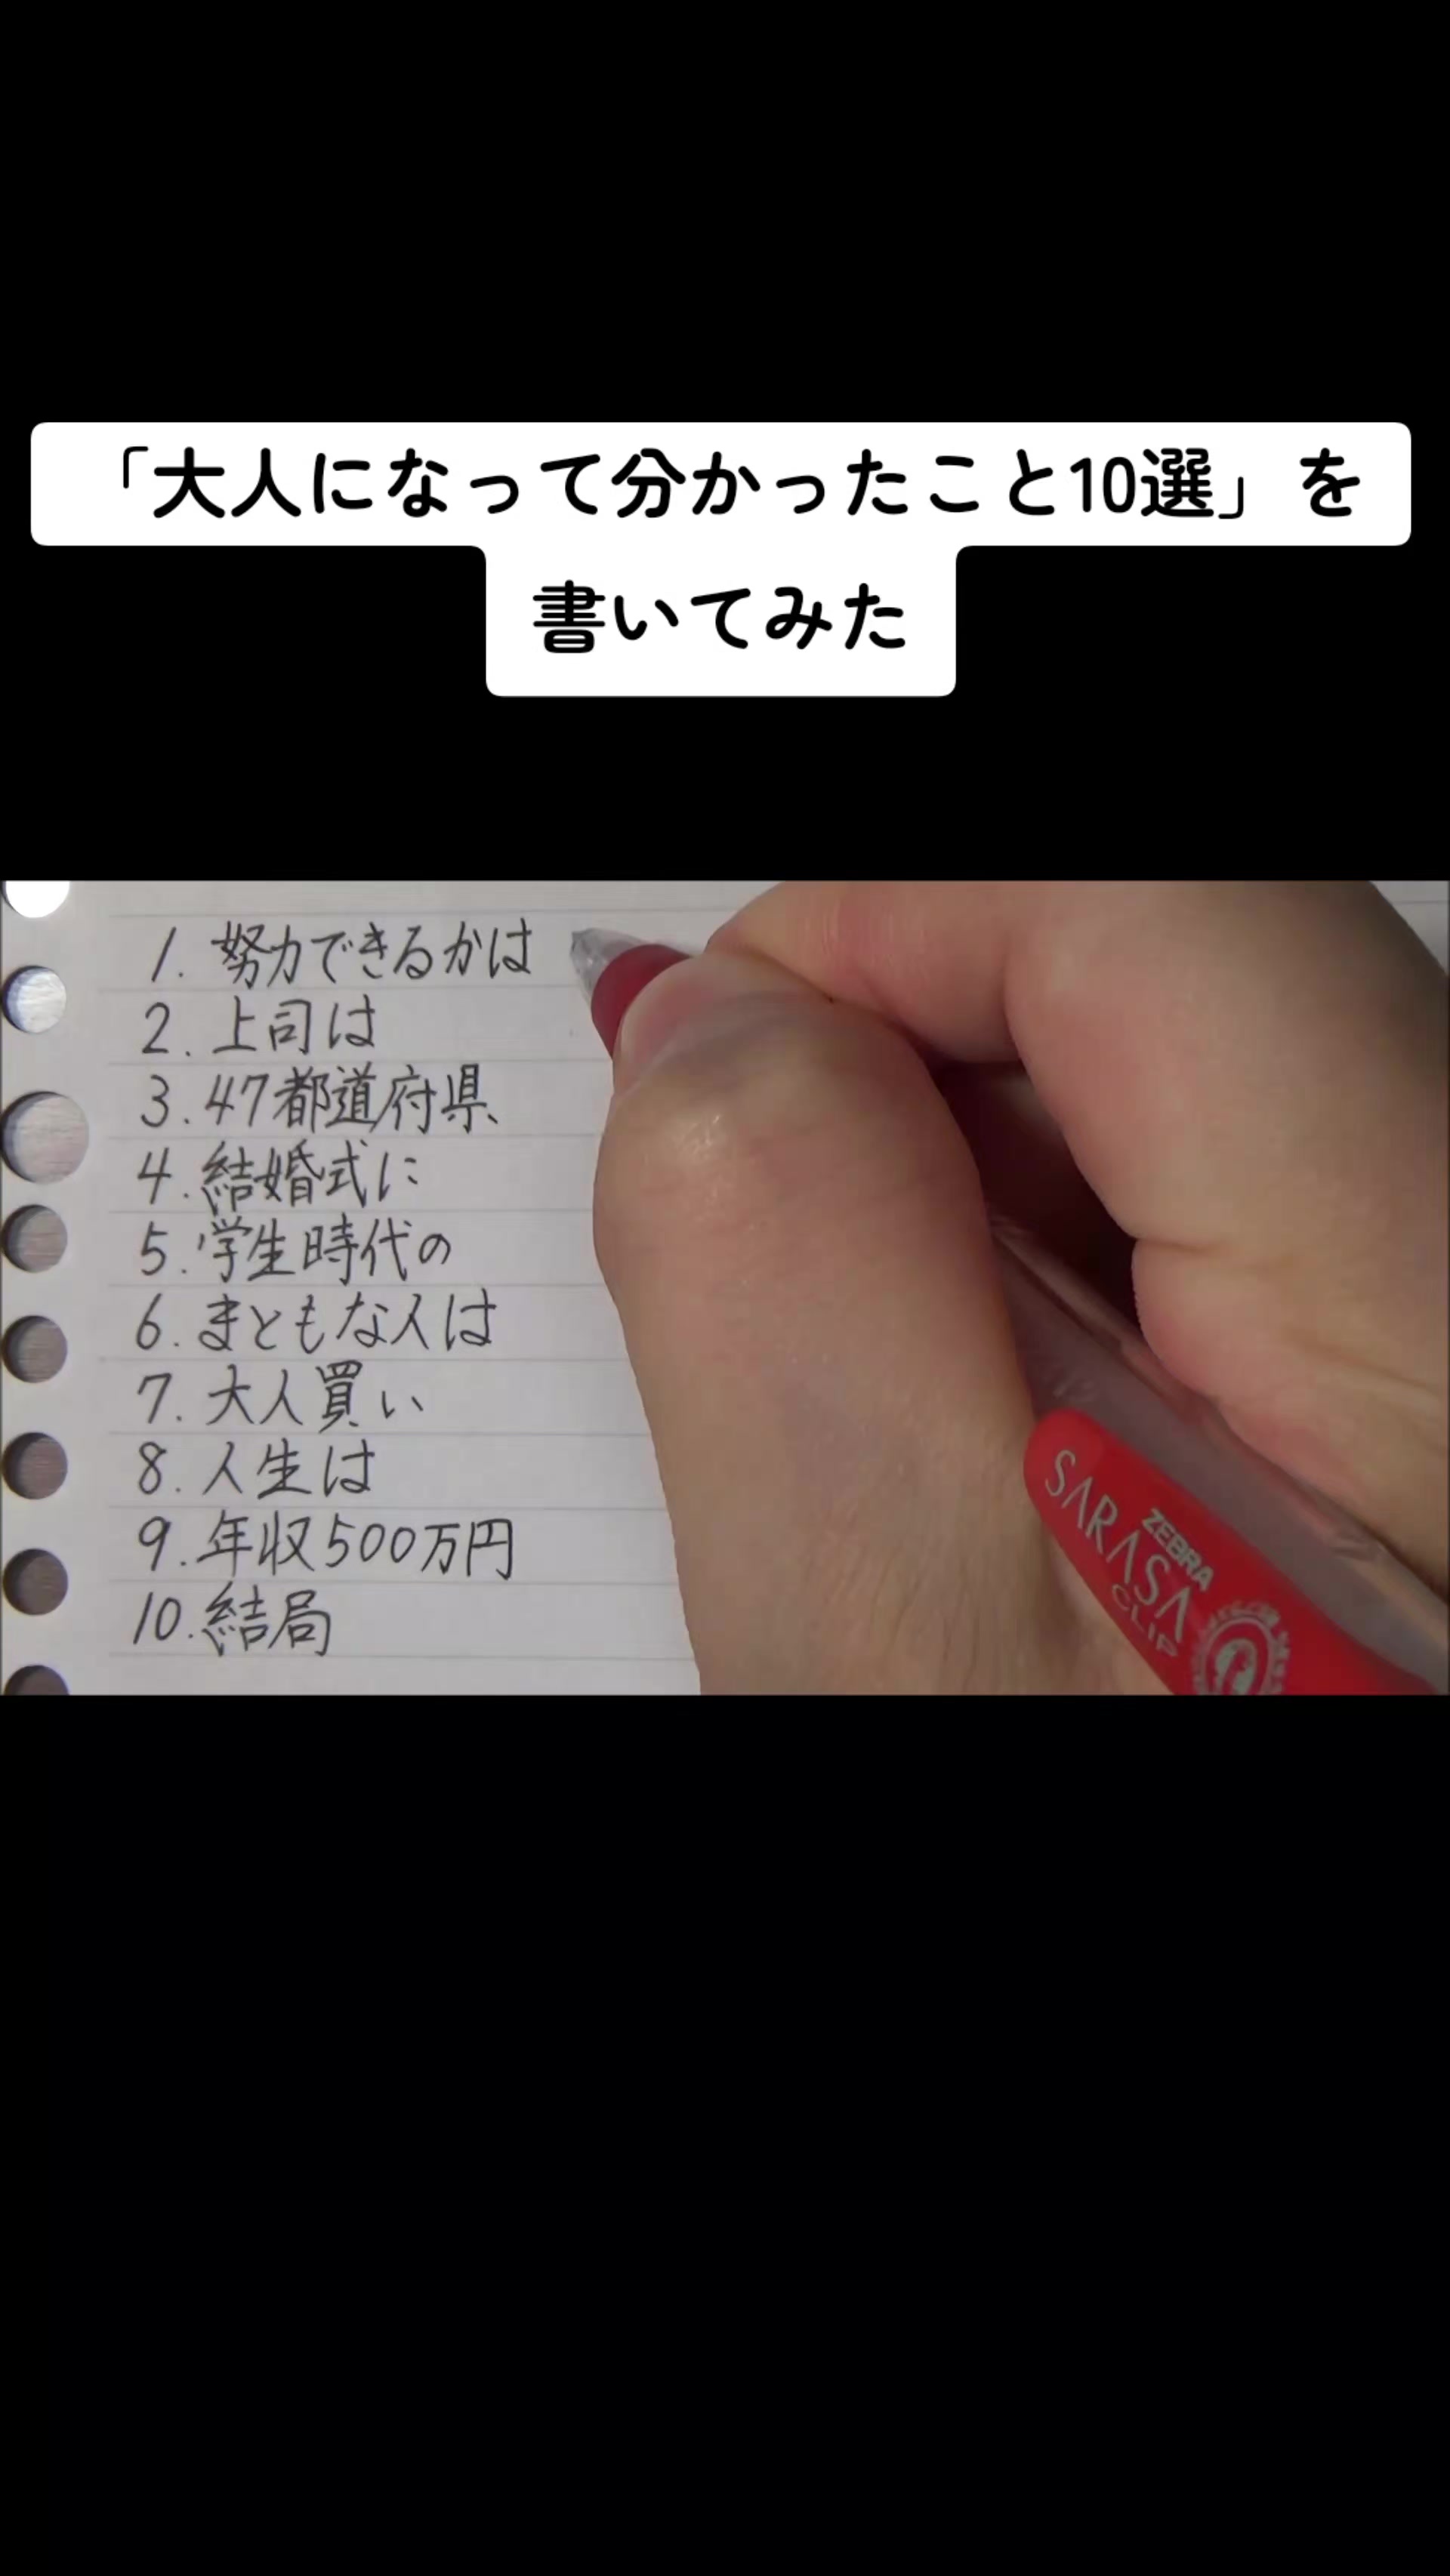 「大人になって分かったこと10選」を
書いてみた
1. 努力できるかは
2. 上司は
3. 47都道府県
4. 結婚式に
5. 学生時代の
6. まともな人は
7. 大人買い
8. 人生は
9. 年収500万円
10. 結局
ZEBRA
SARASA
CLIP